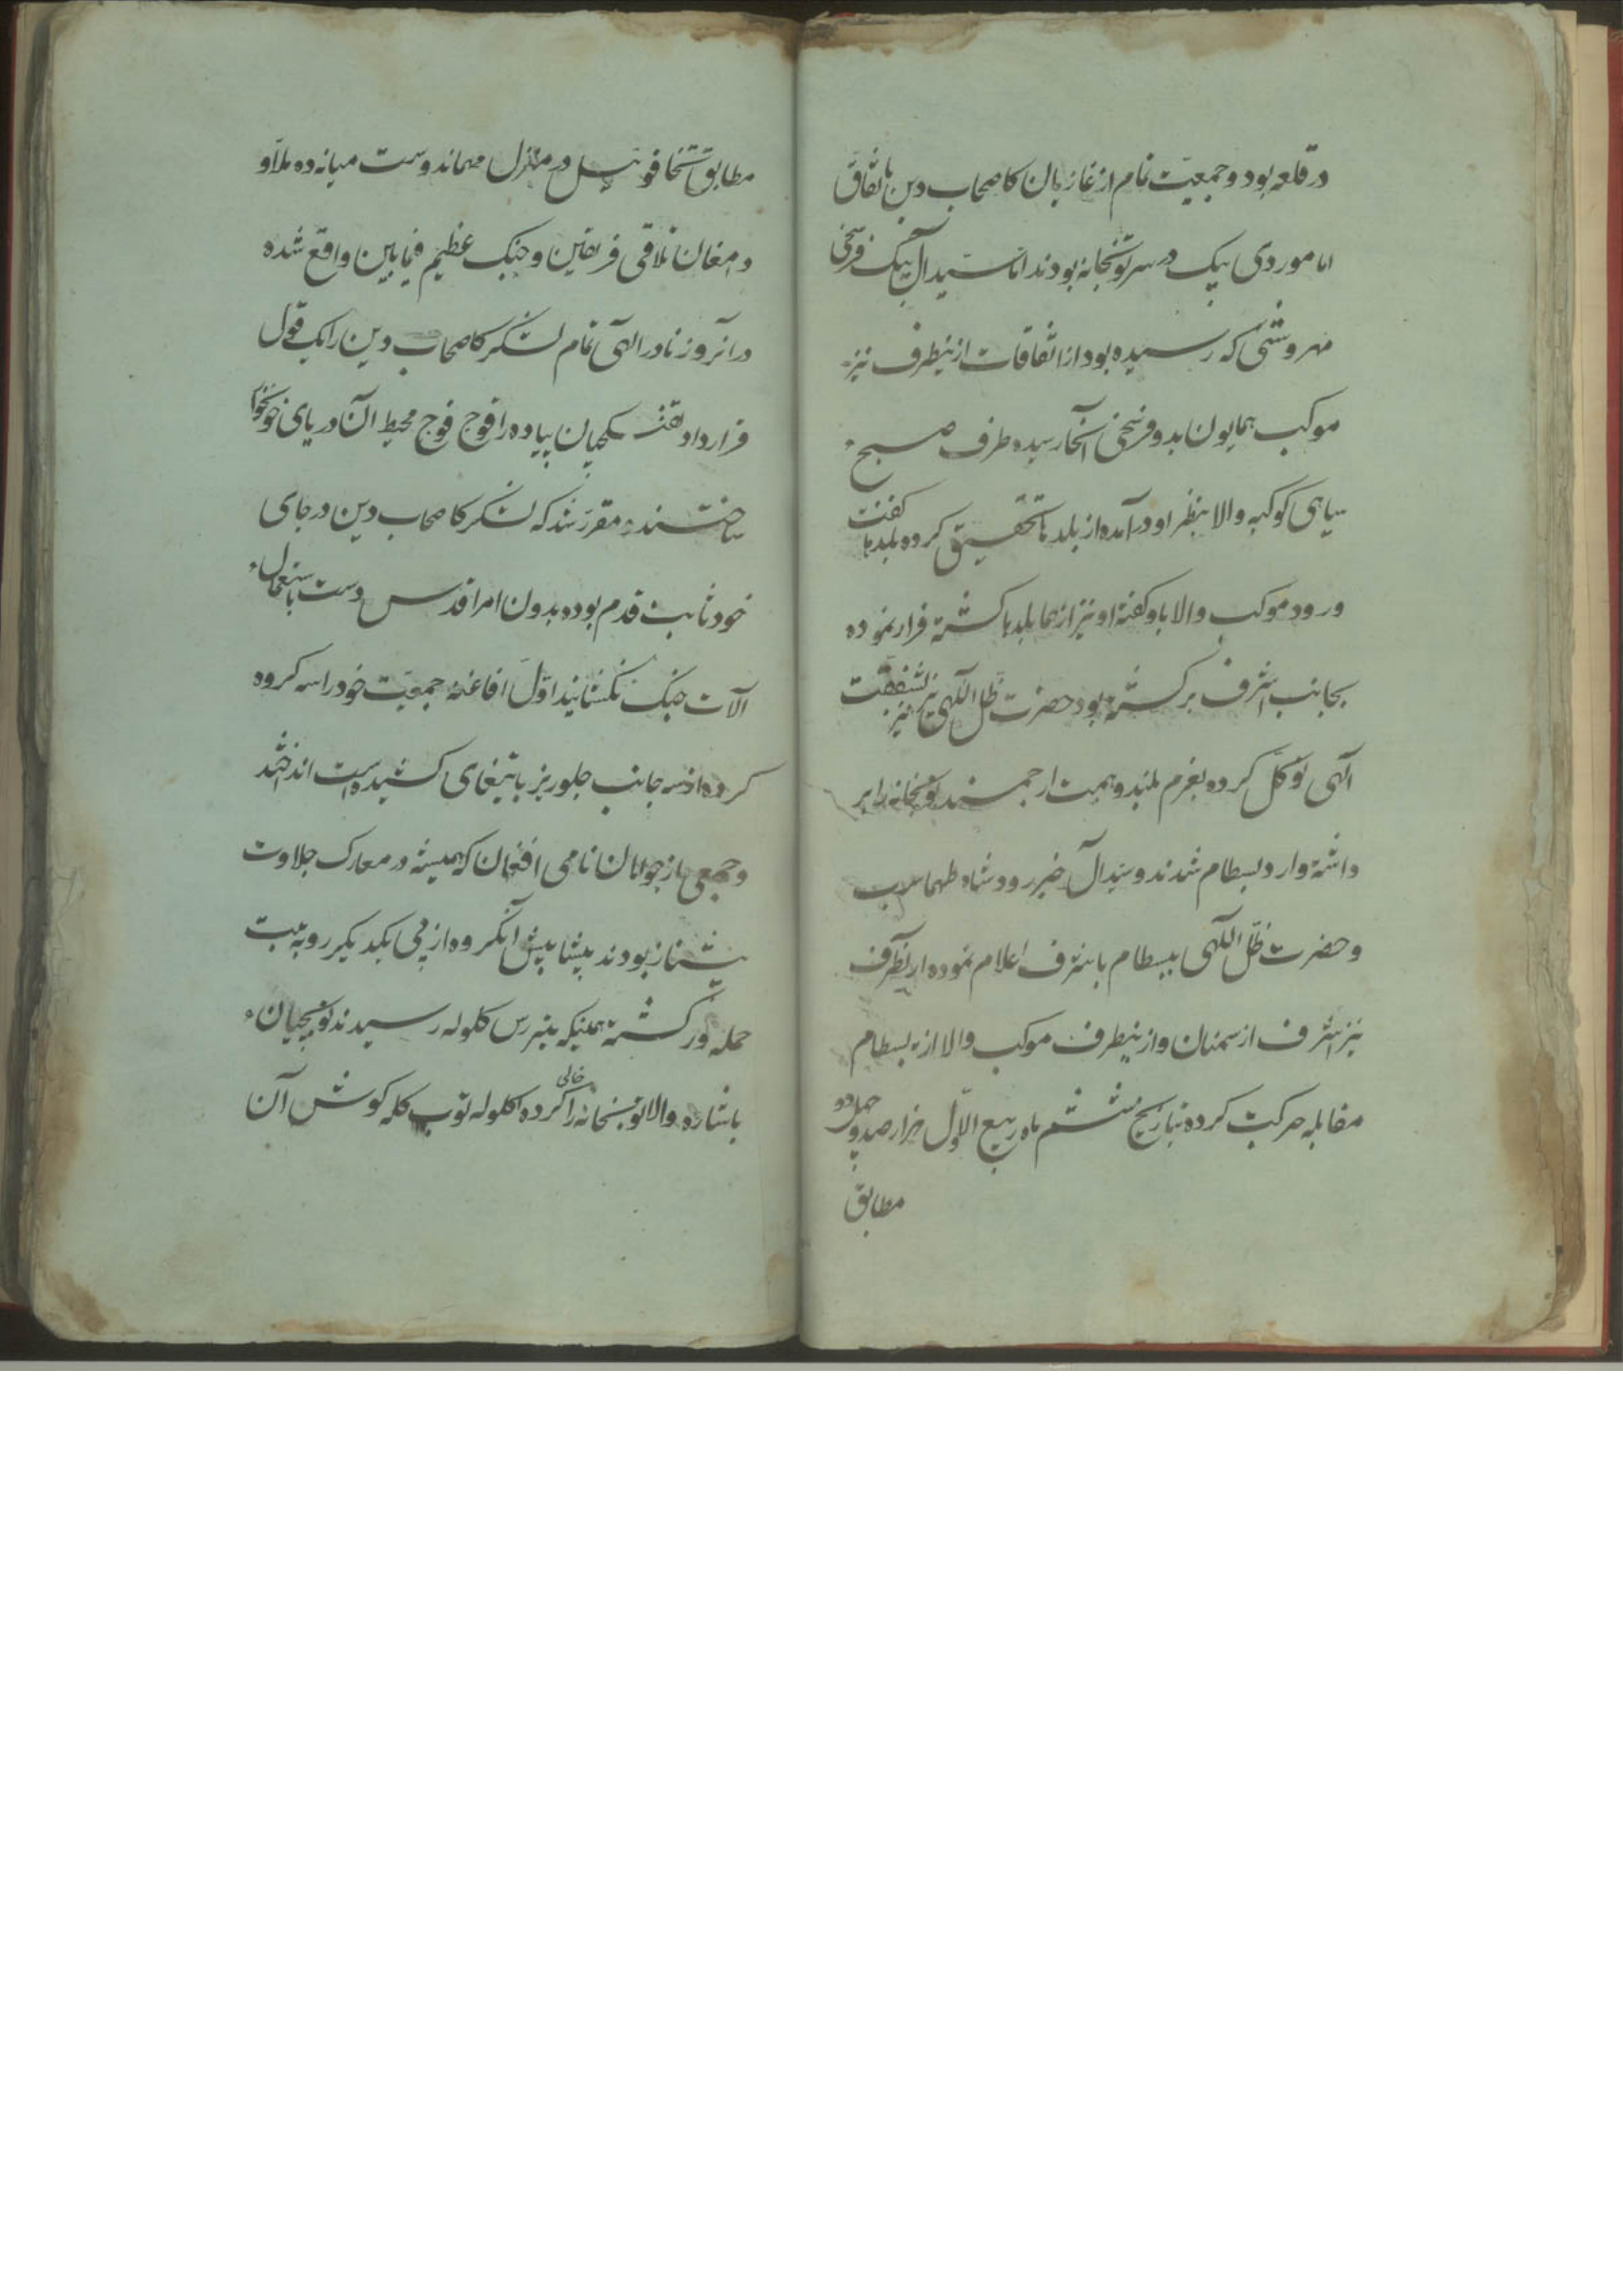 در قلعه بود و جمعیت تمام از غازیان کاصحاب دین باتفاق
امام وردی بیک در سر توپخانه بودند اما سیدال بیک فرسخی
مهروشتی که رسیده بود از اتفاقات از ینطرف نیز
موکب همایون بدو فرسخی آنجا رسیده طرف صبح
سیاهی کوکبه والا بنظر او در آمده از بلدها تحقیق کرده بلدها کفتند
ورود موکب والا باو کفته او نیز از همانجا بلدها کشته فرار نموده
بجانب اشرف برکشته بود حضرت ظل اللهی نیز بشفقت
الهی توکل کرده بعزم بلند و همت ارجمند توپخانه را بر
داشته وارد بسطام شدند و سیدال خبر ورود شاه طهماسب
و حضرت ظل اللهی ببسطام باشرف اعلام نموده از انطرف
نیز اشرف از سمنان و از ینطرف موکب والا از بسطام
مقابله حرکت کرده بتاریخ ششم ماه ربیع الاول هزار صد و چهل دو
مطابق
مطابق تخاقوی ئیل در منزل مهماندوست میانه ده ملا و
دامغان تلاقی فریقین و جنک عظیم فیمابین واقع شده
در آنروز نادر الهی تمام لشکر کاصحاب دین را یک قول
قرار داد تفنکچیان پیاده را فوج فوج محیط آن دریای خونخوار
ساختند و مقرر شد که لشکر کاصحاب دین در جای
خود ثابت قدم بوده بدون امر اقدس دست باستعمال
آلات جنک نکشایند اول افاغنه جمعیت خود را سه کروه
کرده از سه جانب جلوریز با تیغهای کشیده است انداختند
و جمعی از جوانان نامی افغان که همیشه در معارک جلادت
پیشتاز بودند پیشاپیش آنکروه از پی یکدیکر رو به هیبت
حمله ور کشته همینکه بتیررس کلوله رسیدند توپچیان
باشاره والا توپخانه را خالی کرده کلوله توپ کله کوش آن